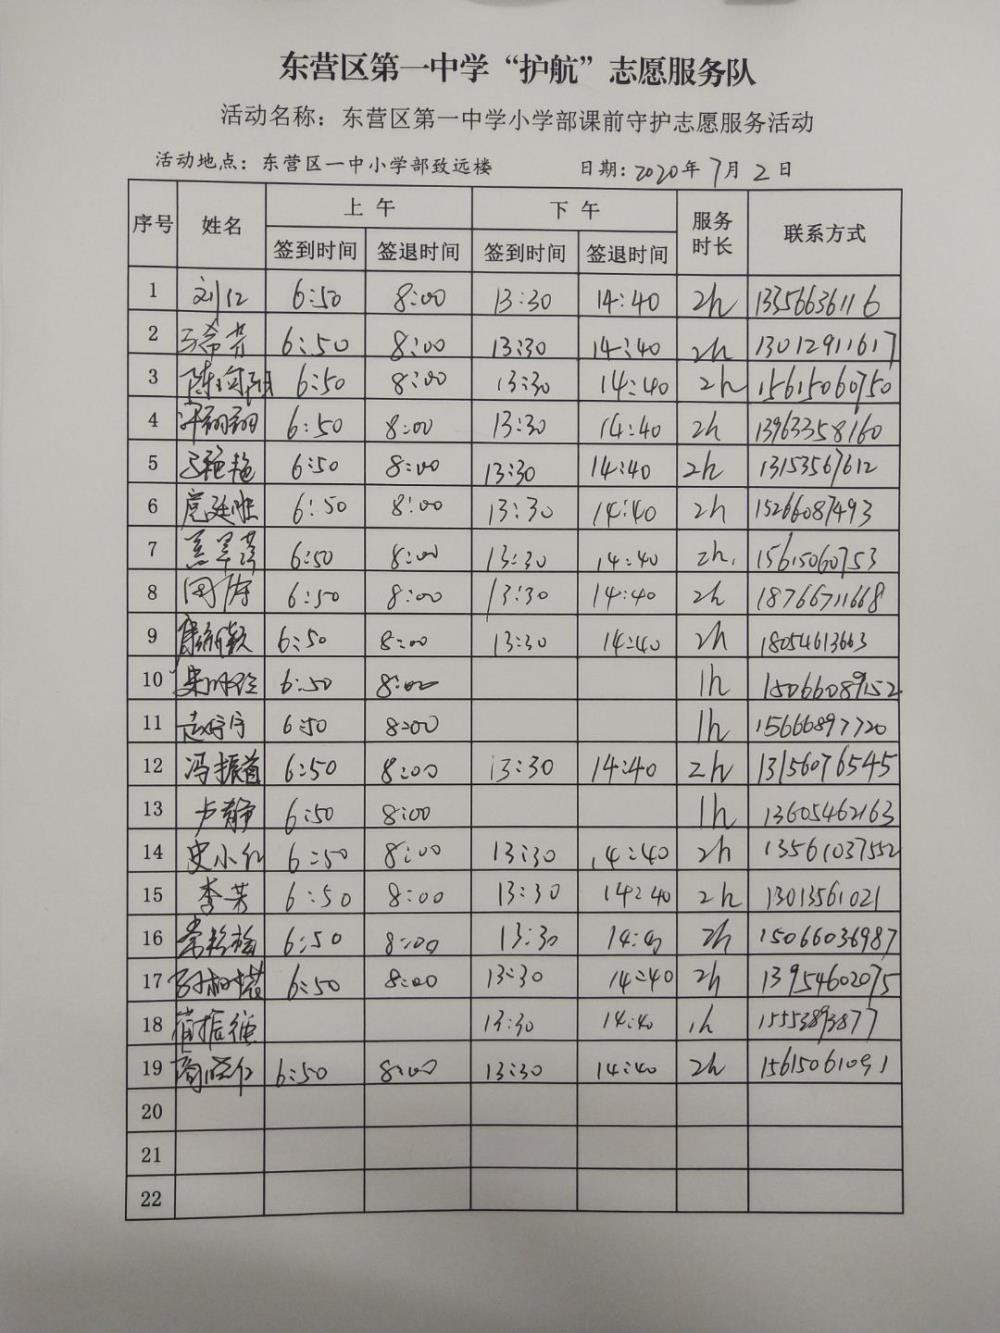 东营区第一中学“护航”志愿服务队
活动名称：东营区第一中学小学部课前守护志愿服务活动
活动地点：东营区一中小学部致远楼 日期：2020年7月2日
序号 姓名 上午 下午 服务时长 联系方式
签到时间 签退时间 签到时间 签退时间
1 刘仁 6:50 8:00 13:30 14:40 2h 13356636116
2 6:50 8:00 13:30 14:40 2h 13012911617
3 6:50 8:00 13:30 14:40 2h 15615060750
4 6:50 8:00 13:30 14:40 2h 13963358160
5 6:50 8:00 13:30 14:40 2h 13153567612
6 6:50 8:00 13:30 14:40 2h 15266087493
7 6:50 8:00 13:30 14:40 2h. 15615060753
8 6:50 8:00 13:30 14:40 2h 18766711668
9 6:50 8:00 13:30 14:40 2h 18054613663
10 6:50 8:00 1h 15066089152
11 6:50 8:00 1h 15666897720
12 冯振首 6:50 8:00 13:30 14:40 2h 13156076545
13 卢静 6:50 8:00 1h 13605462163
14 史小红 6:50 8:00 13:30 14:40 2h 13561037552
15 李芳 6:50 8:00 13:30 14:40 2h 13013561021
16 6:50 8:00 13:30 2h 15066036987
17 6:50 8:00 13:30 14:40 2h 13954602075
18 13:30 14:40 1h 15553893877
19 6:50 8:00 13:30 14:40 2h 15615061091
20
21
22